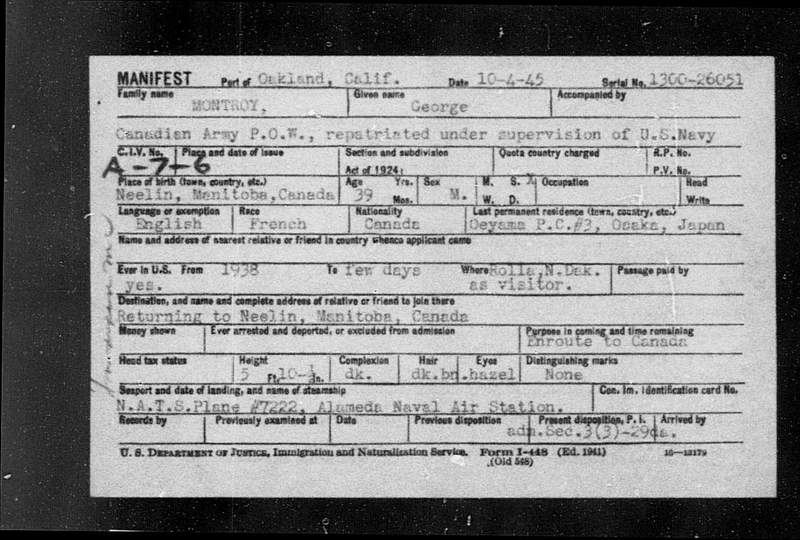 MANIFEST Port of Oakland, Calif. Date 10-4-45 Serial No. 1300-26051
Family name Given name Accompanied by
MONTROY, George
Canadian Army P.O.W., repatriated under supervision of U.S.Navy
C.I.V. No. Place and date of issue Section and subdivision Quota country charged R.P. No.
A-7-6 Act of 1924: P.V. No.
Place of birth (town, country, etc.) Age Yrs. Sex M. S. X Occupation Read
Neelin, Manitoba, Canada 39 Mos. M. W. D. Write
Language or exemption Race Nationality Last permanent residence (town, country, etc.)
English French Canada Oeyama P.C.#3, Osaka, Japan
Name and address of nearest relative or friend in country whence applicant came
Ever in U.S. From 1938 To few days Where Rolla, N.Dak. Passage paid by
yes. as visitor.
Destination, and name and complete address of relative or friend to join there
Returning to Neelin, Manitoba, Canada
Money shown Ever arrested and deported, or excluded from admission Purpose in coming and time remaining
Enroute to Canada
Head tax status Height Complexion Hair Eyes Distinguishing marks
5 Ft. 10-½ In. dk. dk.bn. hazel None
Seaport and date of landing, and name of steamship Con. Im. Identification card No.
N.A.T.S.Plane #7222, Alameda Naval Air Station.
Records by Previously examined at Date Previous disposition Present disposition, P. I. Arrived by
adm.Sec.3(3)-29da.
U. S. DEPARTMENT OF JUSTICE, Immigration and Naturalization Service. Form I-448 (Ed. 1941) 16—13179
(Old 548)